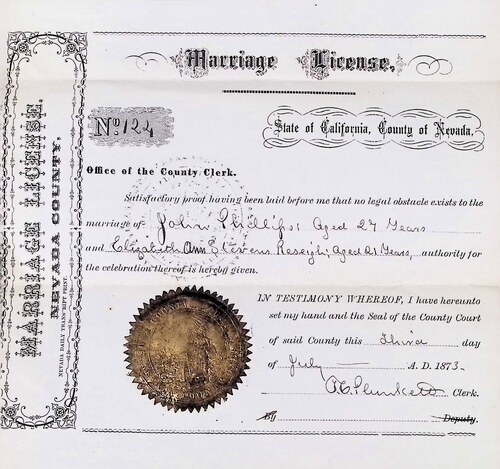 Marriage License.
MARRIAGE LICENSE.
NEVADA COUNTY.
NEVADA DAILY TRANSCRIPT PRINT
No. 124
State of California, County of Nevada,
Office of the County Clerk.
Satisfactory proof having been laid before me that no legal obstacle exists to the
marriage of John Phillips; Aged 27 Years
and Elizabeth Ann Stevens Reseigh; Aged 21 Years, authority for
the celebration thereof is hereby given.
IN TESTIMONY WHEREOF, I have hereunto
set my hand and the Seal of the County Court
of said County this Third day
of July A. D. 1873.
Plunkett Clerk.
By Deputy.